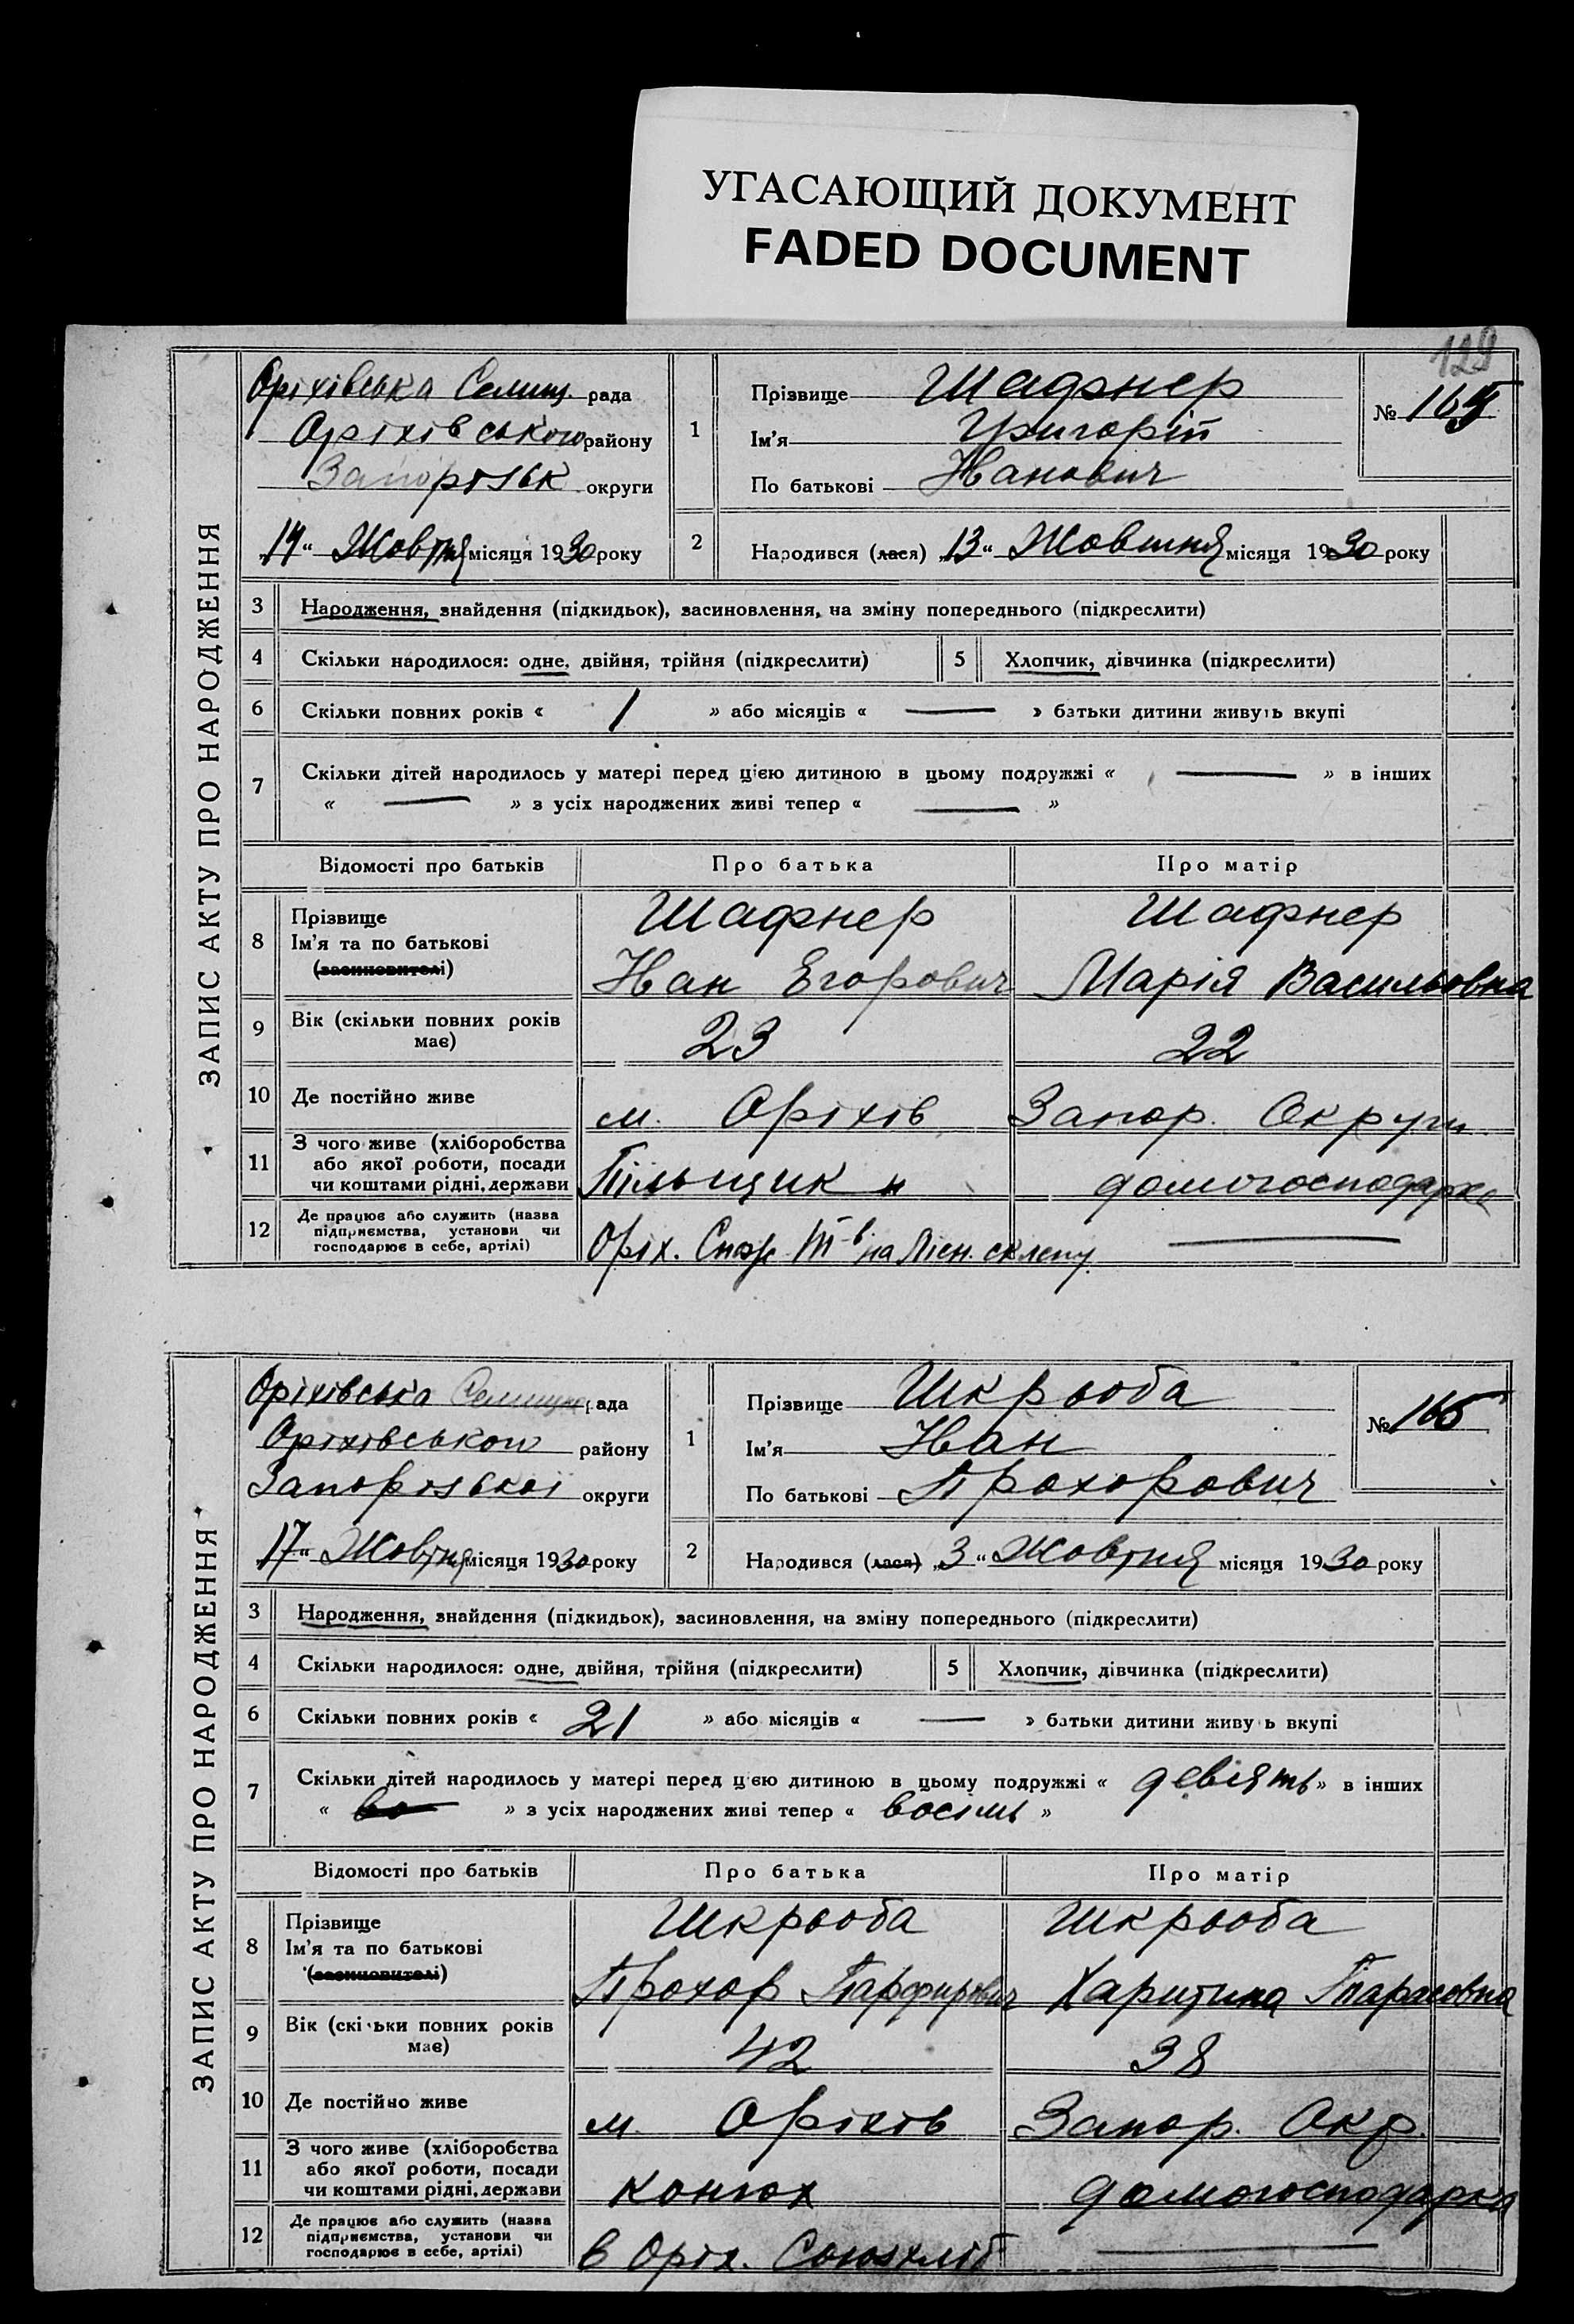 УГАСАЮЩИЙ ДОКУМЕНТ
FADED DOCUMENT
129
ЗАПИС АКТУ ПРО НАРОДЖЕННЯ
Оріхівська Селищ. рада
Оріхівського району
Запорізьк округи
„14“ Жовтня місяця 1930 року
1
Прізвище Шафнер
Ім'я Григорій
По батькові Иванович
№ 164
2 Народився (лася) „13“ Жовтня місяця 1930 року
3 Народження, знайдення (підкидьок), засиновлення, на зміну попереднього (підкреслити)
4 Скільки народилося: одне, двійня, трійня (підкреслити) 5 Хлопчик, дівчинка (підкреслити)
6 Скільки повних років « 1 » або місяців « — » батьки дитини живуть вкупі
7 Скільки дітей народилось у матері перед цією дитиною в цьому подружжі « — » в інших
« — » з усіх народжених живі тепер « — »
Відомості про батьків Про батька Про матір
8 Прізвище Шафнер Шафнер
Ім'я та по батькові Иван Егорович Марія Васильовна
(засиновителі)
9 Вік (скільки повних років має) 23 22
10 Де постійно живе м. Оріхів Запор. Округи
11 З чого живе (хліборобства
або якої роботи, посади
чи коштами рідні, держави домогосподарка
12 Де працює або служить (назва
підприємства, установи чи
господарює в себе, артілі) Оріх. Спож. Т-в на Лісн. склепу —
ЗАПИС АКТУ ПРО НАРОДЖЕННЯ
Оріхівська Селищна рада
Оріхівського району
Запорізької округи
„17“ Жовтня місяця 1930 року
1
Прізвище Шкрьоба
Ім'я Иван
По батькові Прохорович
№ 165
2 Народився (лася) „3“ Жовтня місяця 1930 року
3 Народження, знайдення (підкидьок), засиновлення, на зміну попереднього (підкреслити)
4 Скільки народилося: одне, двійня, трійня (підкреслити) 5 Хлопчик, дівчинка (підкреслити)
6 Скільки повних років « 21 » або місяців « — » батьки дитини живуть вкупі
7 Скільки дітей народилось у матері перед цією дитиною в цьому подружжі « девіять » в інших
« во » з усіх народжених живі тепер « восімь »
Відомості про батьків Про батька Про матір
8 Прізвище Шкрьоба Шкрьоба
Ім'я та по батькові Прохор Парфирович Харитина Тарасовна
(засиновителі)
9 Вік (скільки повних років має) 42 38
10 Де постійно живе м. Оріхів Запор. Окр.
11 З чого живе (хліборобства
або якої роботи, посади
чи коштами рідні, держави конюх домогосподарка
12 Де працює або служить (назва
підприємства, установи чи
господарює в себе, артілі) в Оріх. Союзхліб —